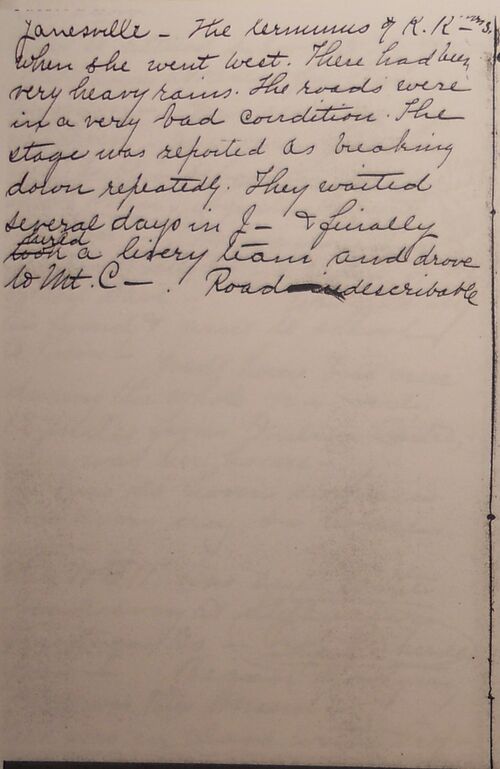 Janesville - The terminus of R. R
when she went west. There had been
very heavy rains. The roads were
in a very bad condition. The
stage was reported as breaking
down repeatedly. They waited
several days in J - & finally
hired
took a livery team and drove
to Mt. C - . Road indescribable